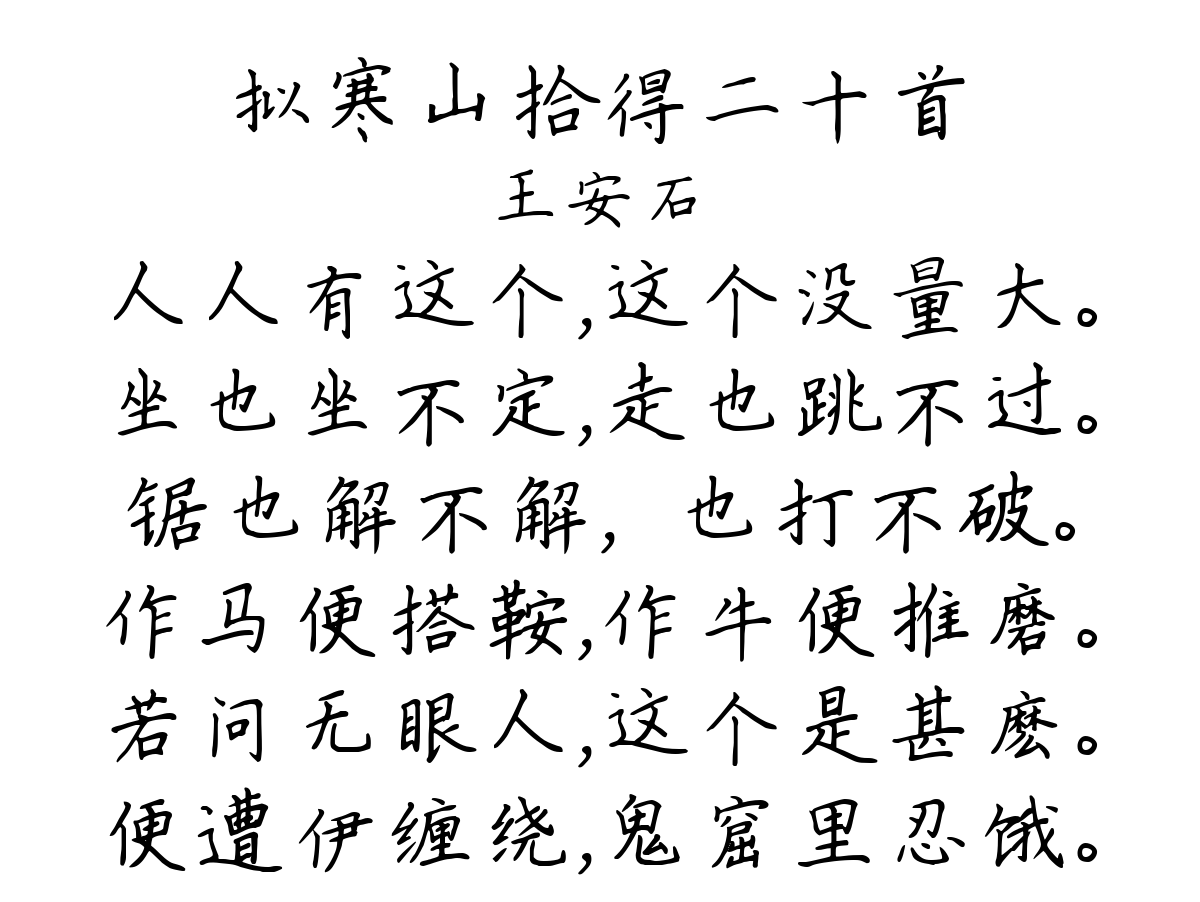 拟寒山拾得二十首
王安石
人人有这个,这个没量大。
坐也坐不定,走也跳不过。
锯也解不解, 也打不破。
作马便搭鞍,作牛便推磨。
若问无眼人,这个是甚麽。
便遭伊缠绕,鬼窟里忍饿。